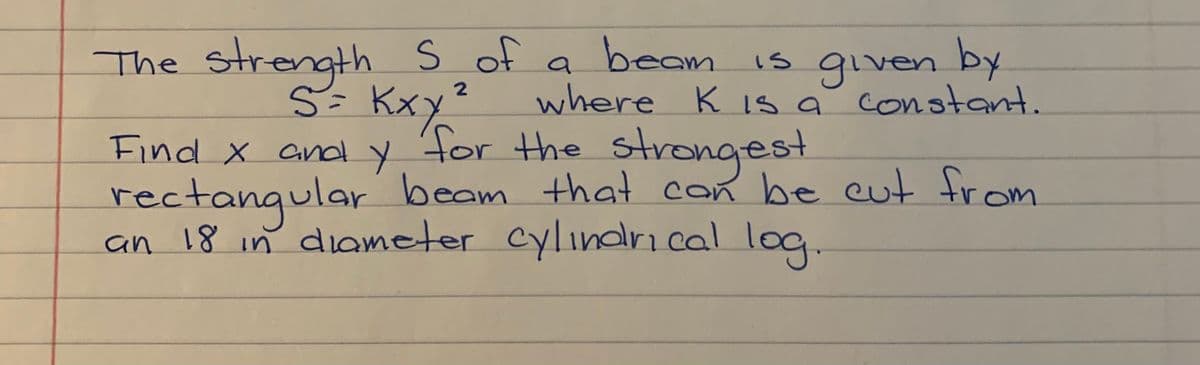 The strength S of a beam is given by
S = Kxy² where K is a constant.
Find x and y for the strongest
rectangular beam that can be cut from
an 18 in diameter cylindrical log.